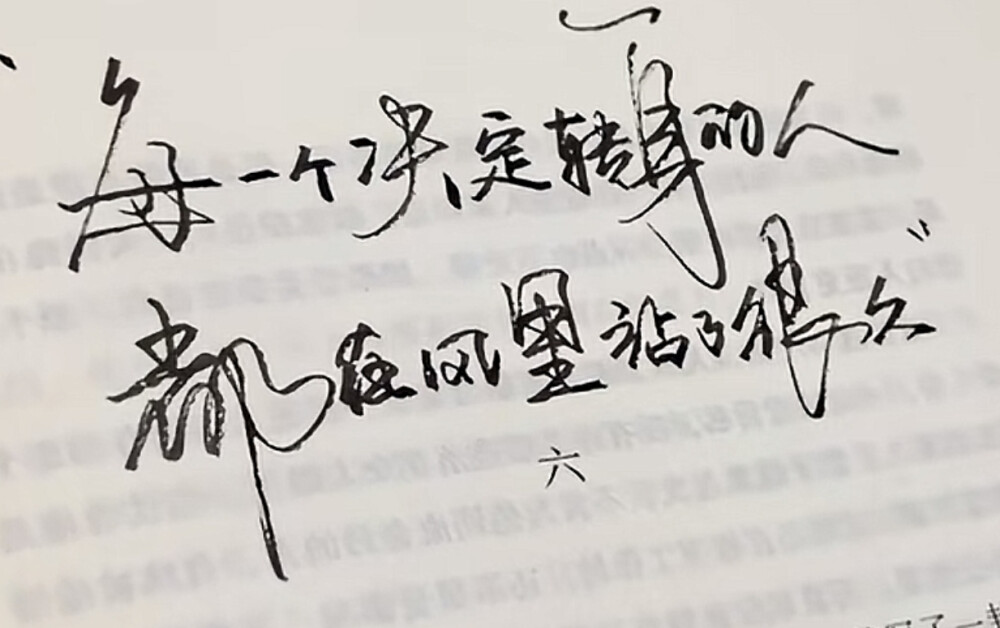 每一个决定转身的人
都在风里站了很久
六
了一